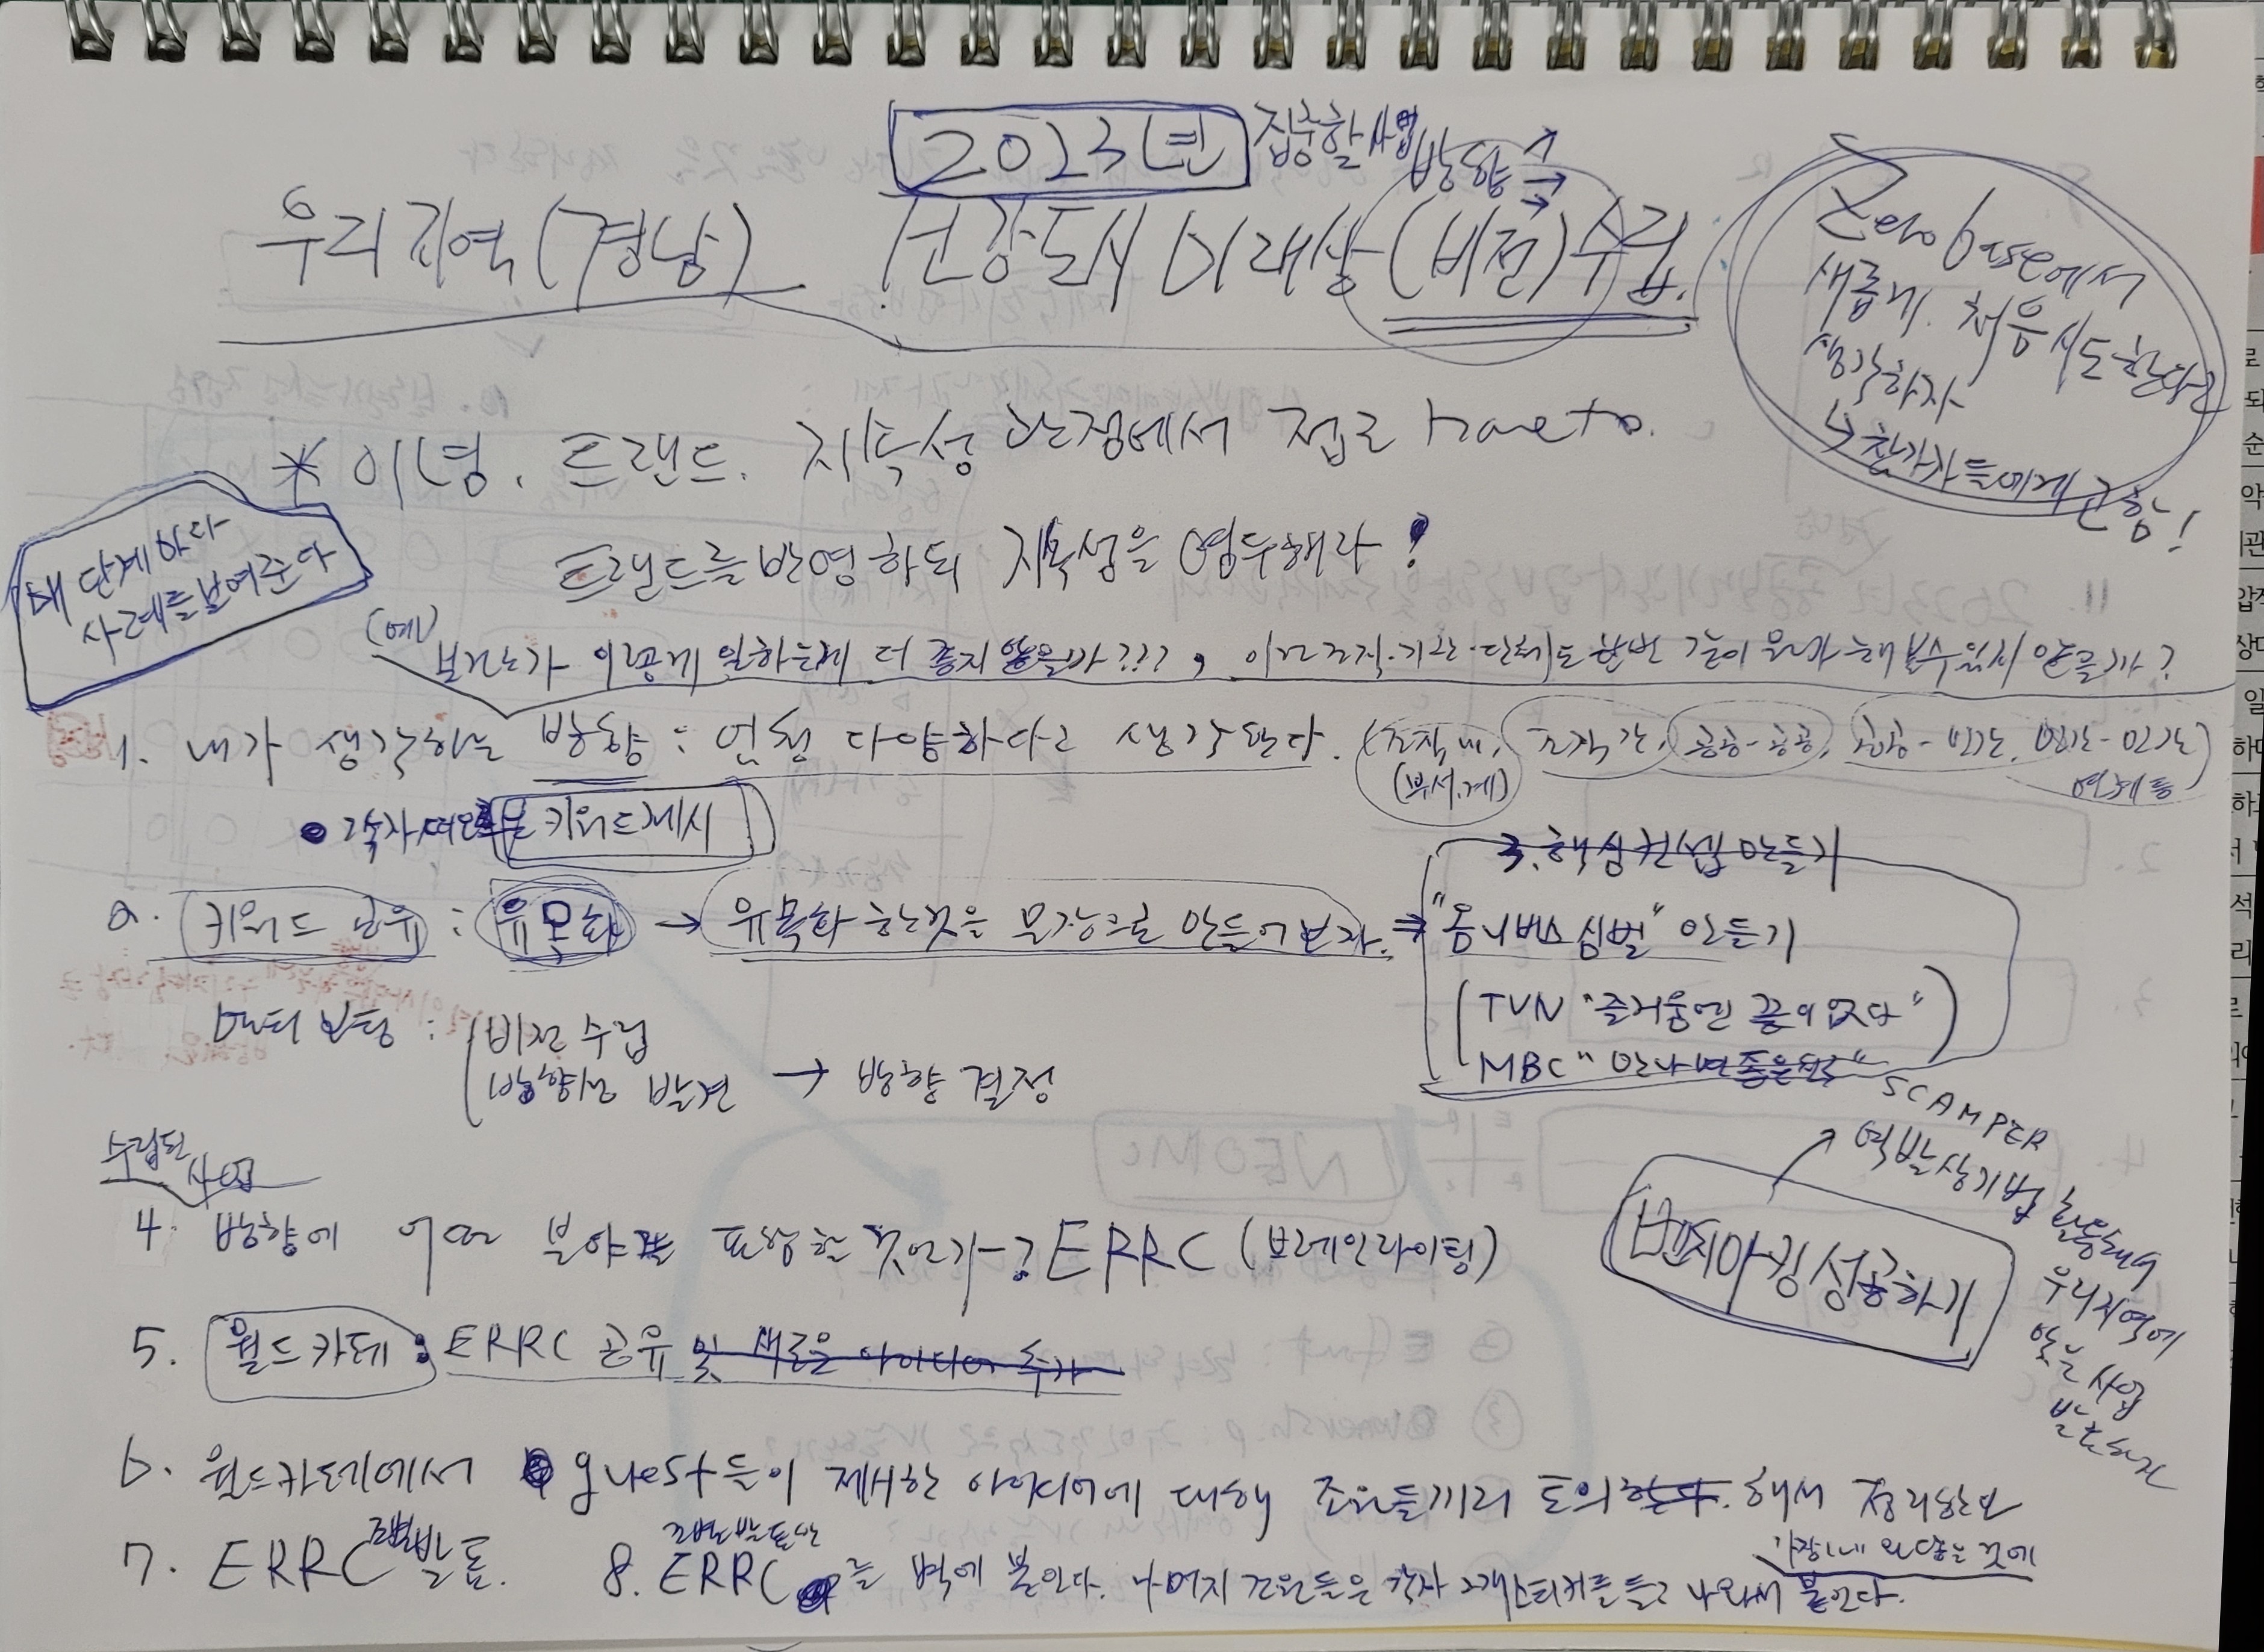 2023년 집중할 사업 방향
우리 지역(경남) 건강도시 미래상(비전)수립.
Zero base에서
새롭게. 처음 시도한다고
생각하자
↳ 참가자들에게 권함!
* 이념, 트랜드, 지속성 관점에서 접근
트랜드를 반영하되 지속성을 염두해라!
매 단계마다
사례를 보여준다
(예)
보건소가 이렇게 일하는게 더 좋지 않을까???, 이런 조직·기관·단체도 한번 같이 뭔가 해볼수 있지 않을까?
1. 내가 생각하는 방향 : 엄청 다양하다고 생각된다. (조직내, 조직간, 공공-공공, 공공-민간, 민간-민간)
(부서.계) 연계 등
• 각자 떠오른 키워드 제시
2. 키워드 공유 : 유목화 → 유목화 한것은 문장으로 만들어보자. ⇒
3. 핵심컨셉 만들기
"옴니버스 심벌" 만들기
(TVN "즐거움엔 끝이 없다"
MBC "만나면 좋은 친구")
멀티보팅 : 비전 수립
방향성 발견 → 방향 결정
수립된 사업
4. 방향에 어떤 분야를 포함할 것인가? ERRC (브레인라이팅)
SCAMPER
역발상기법 활용해서
우리지역에
맞는 사업
발표하기
벤치마킹 성공하기
5. 월드카페 : ERRC 공유 및 새로운 아이디어 추가
6. 월드카페에서 guest들이 제시한 아이디어에 대해 조원들끼리 토의한다. 해서 정리한다
7. ERRC 조별 발표.
8. ERRC 조별 발표한 를 벽에 붙인다. 나머지 조원들은 각자 2개 스티커를 들고 나와서 가장 내 와닿는 것에 붙인다.